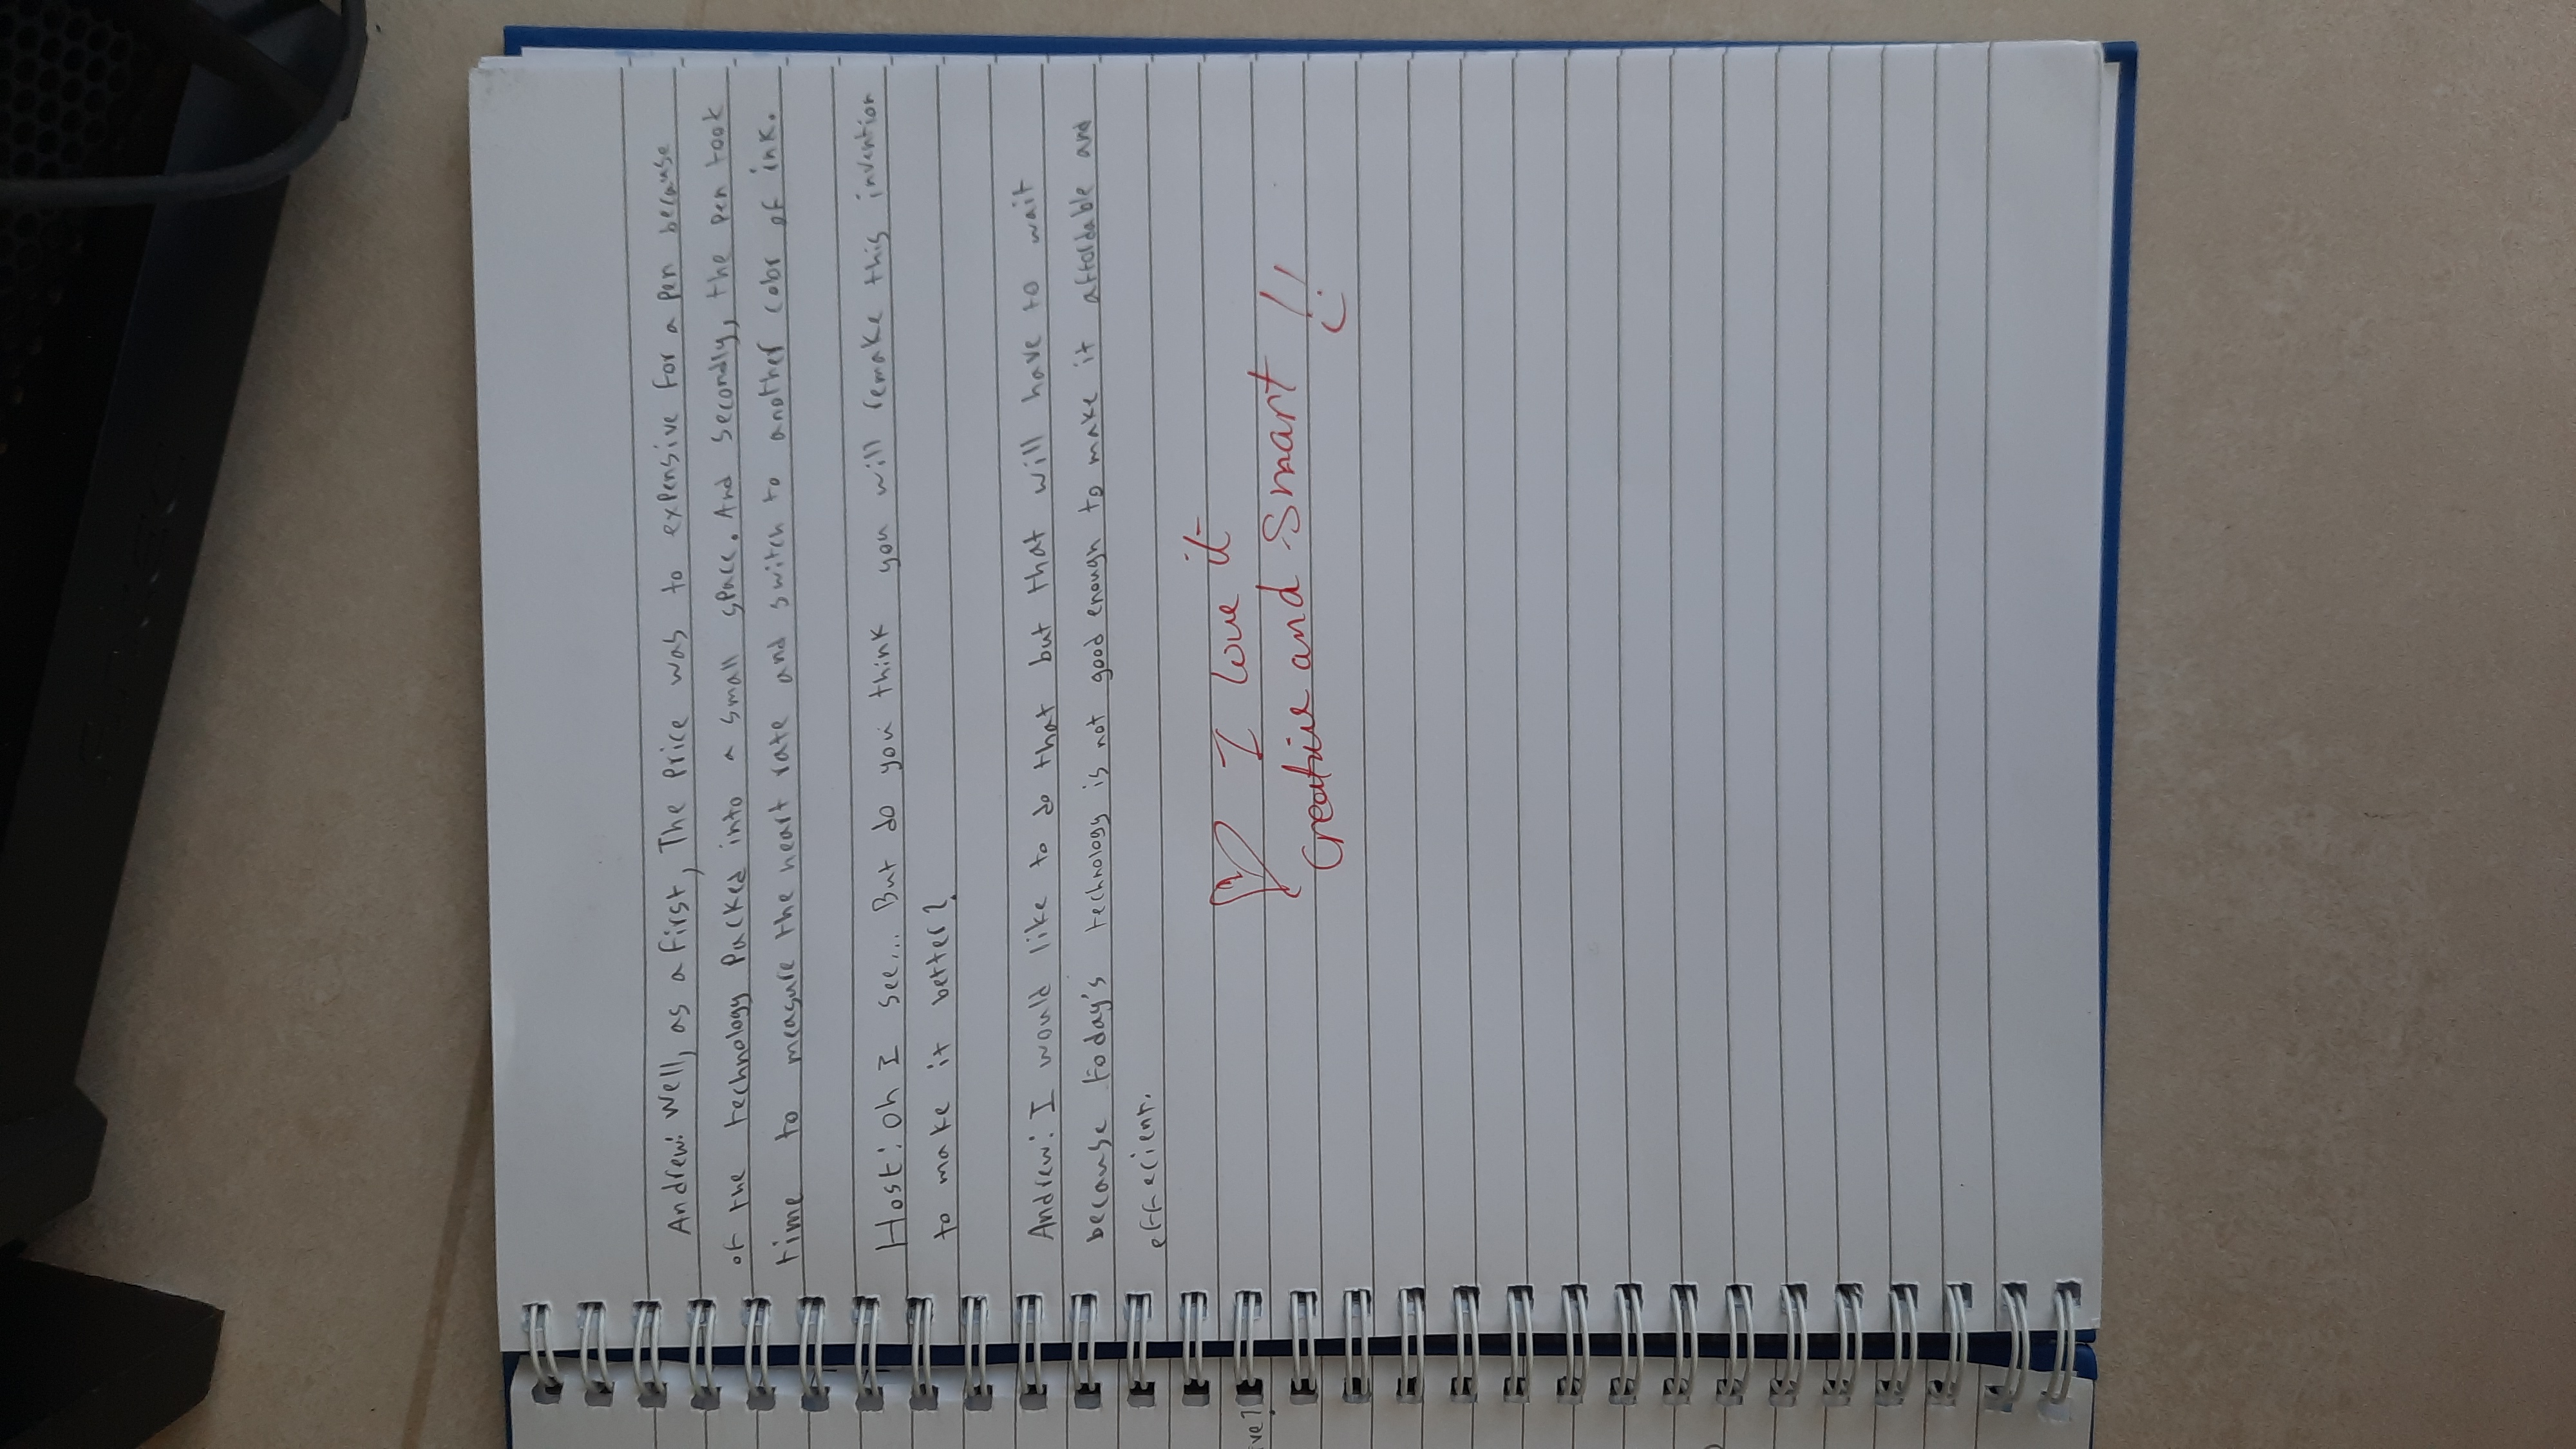 Andrew: Well, as a first, The price was to expensive for a pen because
of the technology packed into a small space. And secondly, the pen took
time to measure the heart rate and switch to another color of ink.
Host: oh I see... But do you think you will remake this invention
to make it better?
Andrew: I would like to do that but that will have to wait
because today's technology is not good enough to make it affordable and
effecient.
I love it
Creative and smart !!
ve?